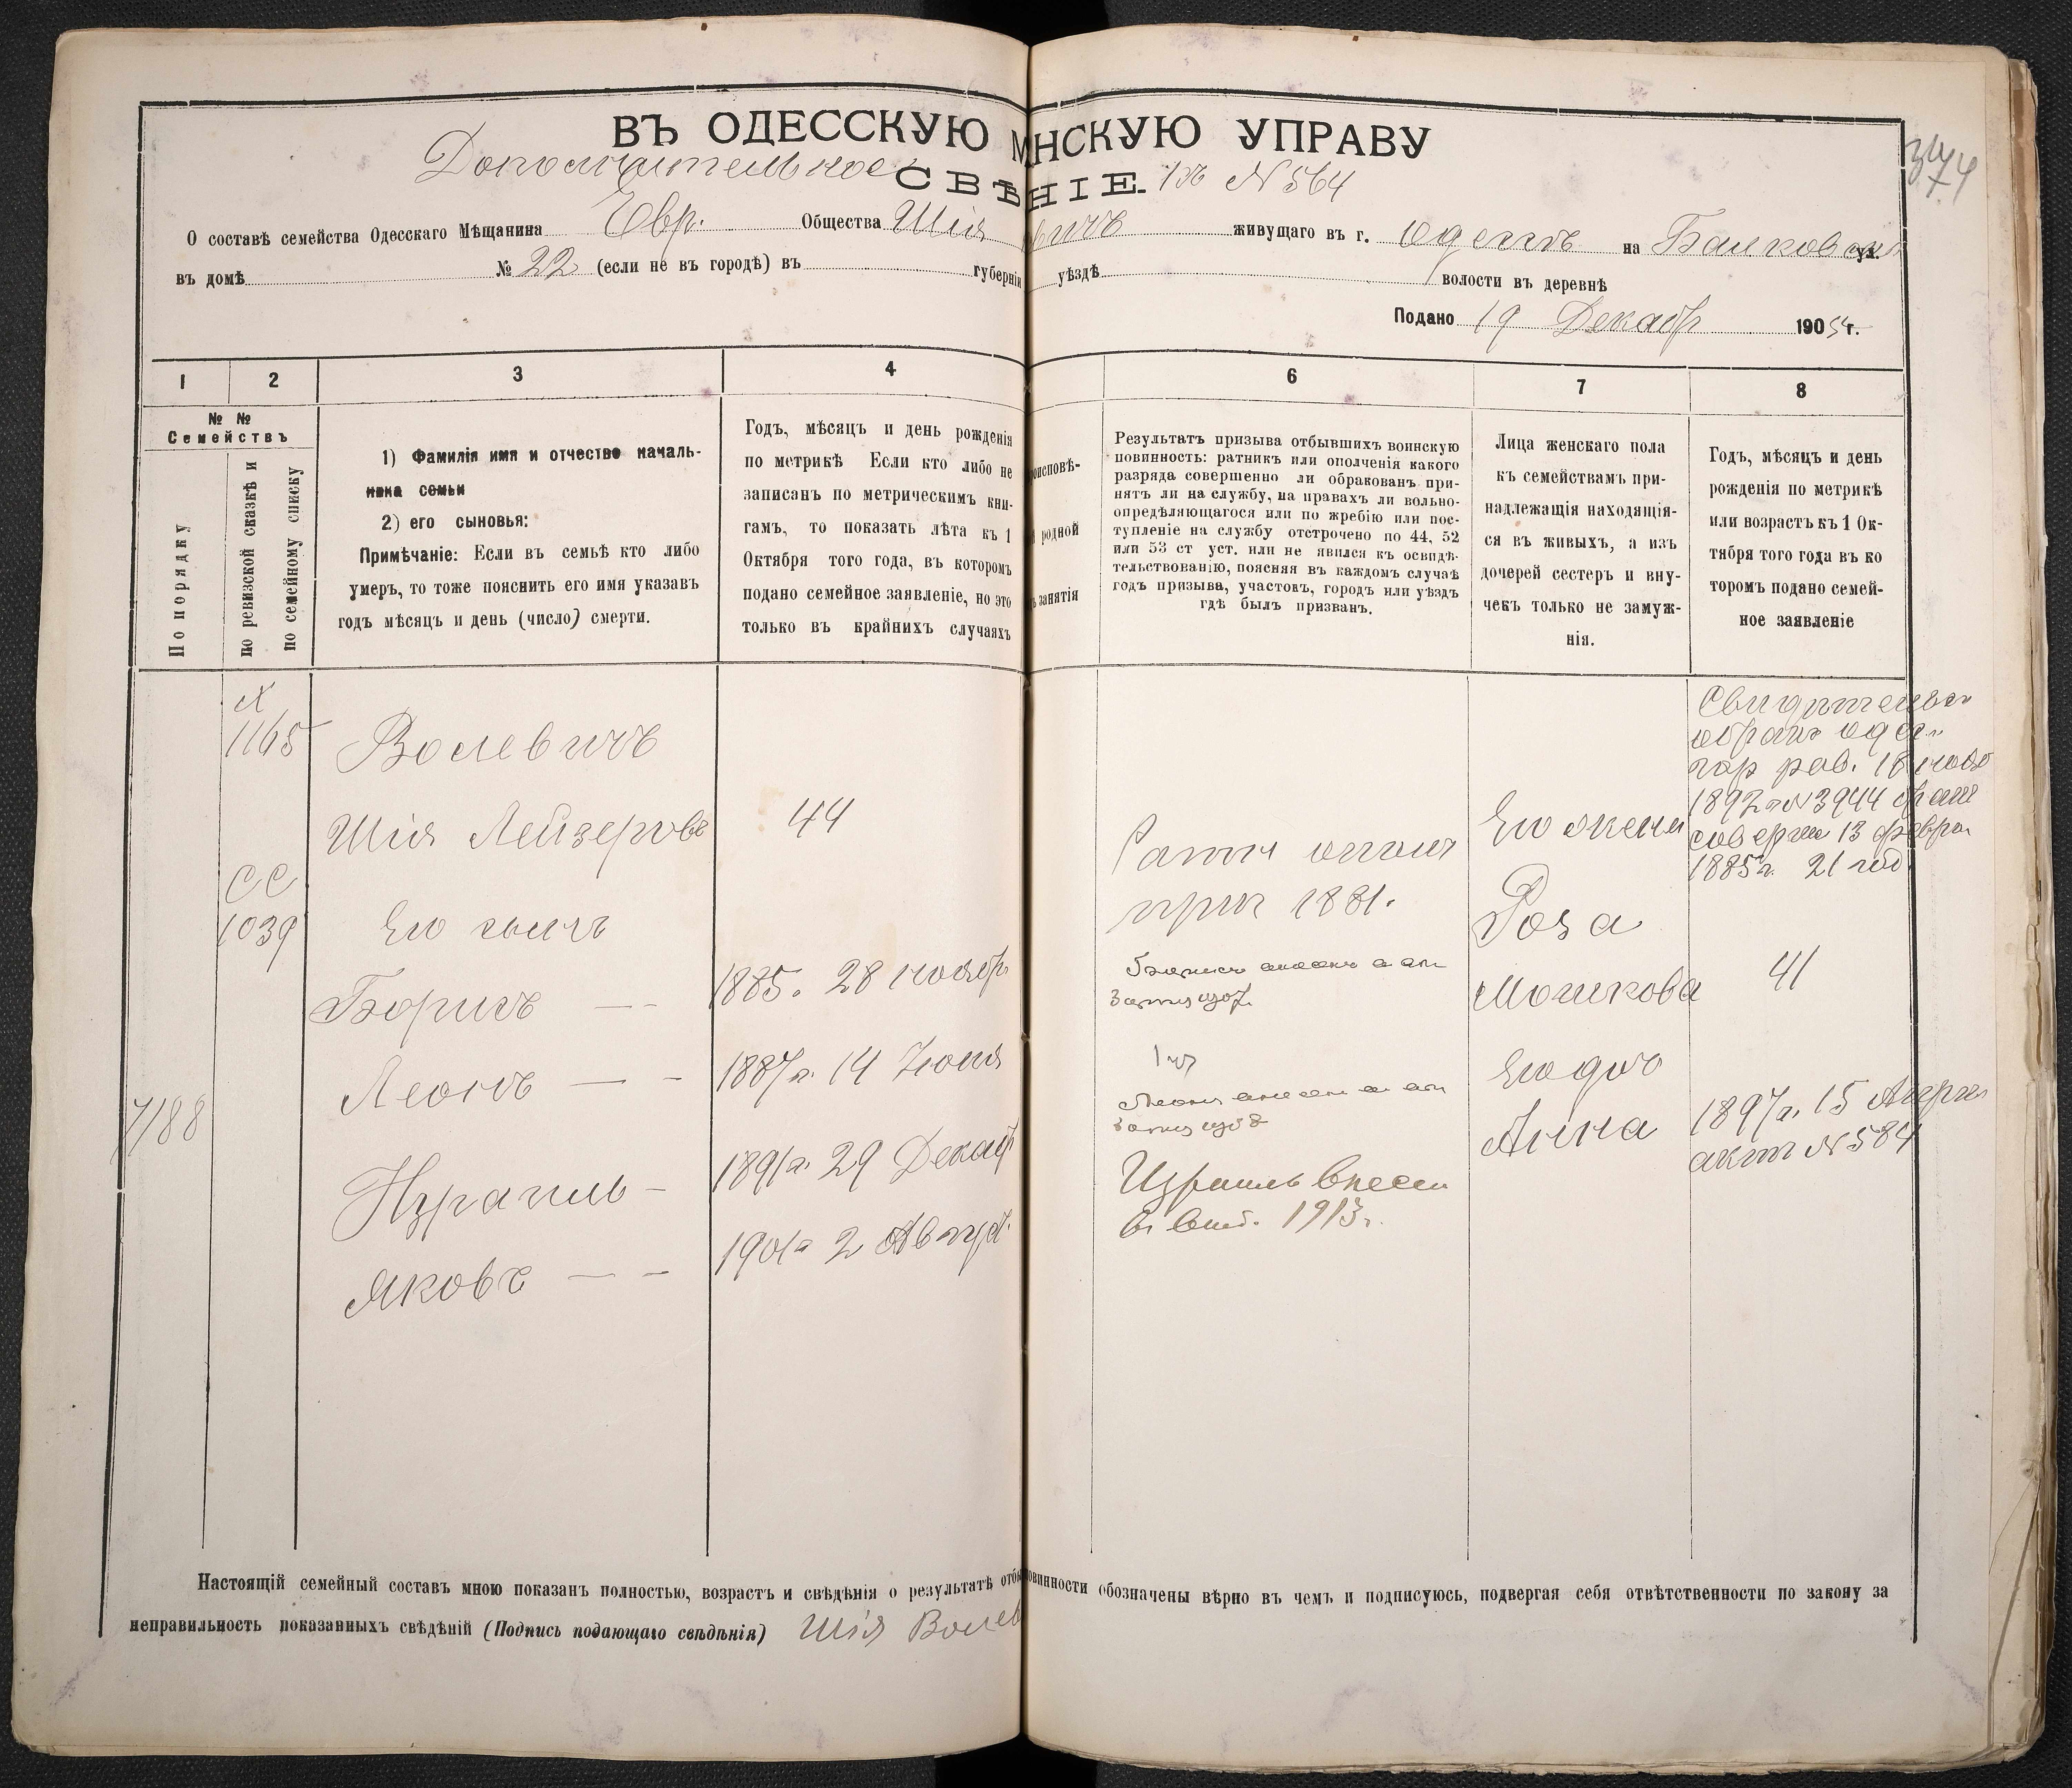 ВЪ ОДЕССКУЮ М НСКУЮ УПРАВУ
Дополнительное СВѢ НІЕ. къ № 564
374
О составѣ семейства Одесскаго Мѣщанина Евр. Общества Шія вичъ живущаго въ г. Одессѣ на Балковской ул.
въ домѣ № 22 (если не въ городѣ) въ губерніи уѣздѣ волости въ деревнѣ
Подано 19 Декабр 190 г.
1 2 3 4 6 7 8
№ №
Семействъ
По порядку
по ревизской сказкѣ и
по семейному списку
1) Фамилія имя и отчество началь-
ника семьи
2) его сыновья:
Примѣчаніе: Если въ семьѣ кто либо
умеръ, то тоже пояснить его имя указавъ
годъ мѣсяцъ и день (число) смерти.
Годъ, мѣсяцъ и день рожденія
по метрикѣ Если кто либо не
записанъ по метрическимъ кни-
гамъ, то показать лѣта къ 1
Октября того года, въ которомъ
подано семейное заявленіе, но это
только въ крайнихъ случаяхъ
роисповѣ-
родной
занятія
Результатъ призыва отбывшихъ воинскую
повинность: ратникъ или ополченія какого
разряда совершенно ли обракованъ при-
нятъ ли на службу, на правахъ ли вольно-
опредѣляющагося или по жребію или пос-
тупленіе на службу отстрочено по 44, 52
или 53 ст уст. или не явился къ освидѣ-
тельствованію, поясняя въ каждомъ случаѣ
годъ призыва, участокъ, городъ или уѣздъ
гдѣ былъ призванъ.
Лица женскаго пола
къ семействамъ при-
надлежащія находящія-
ся въ живыхъ, а изъ
дочерей сестеръ и вну-
чекъ только не замуж-
нія.
Годъ, мѣсяцъ и день
рожденія по метрикѣ
или возрастъ къ 1 Ок-
тября того года въ ко
торомъ подано семей-
ное заявленіе
1165
Волевичъ
Шія Лейзеровъ 44
СС
1039
Его сынъ
Борисъ — — 1885. 28 ноябр
Леонъ — — 1887г. 14 Іюня
7188
Израиль — 1891г. 29 Декаб
Яковъ — — 1901г 2 Август
Ратн ополч
приз 1881.
Израиль внесен
в 1913г.
Его жена
Роза
Мошкова 41
Его дочь
Анна
1897г. 15 Апрѣл
актъ № 584
Свидѣтельст
гор рав. 18
1892г № 3944
соверш 13 февра
1885г. 21 год.
Настоящій семейный составъ мною показанъ полностью, возрастъ и свѣдѣнія о результатѣ отбы овинности обозначены вѣрно въ чемъ и подписуюсь, подвергая себя отвѣтственности по закону за
неправильность показанныхъ свѣдѣній (Подпись подающаго свѣдѣнія) Шія Волев